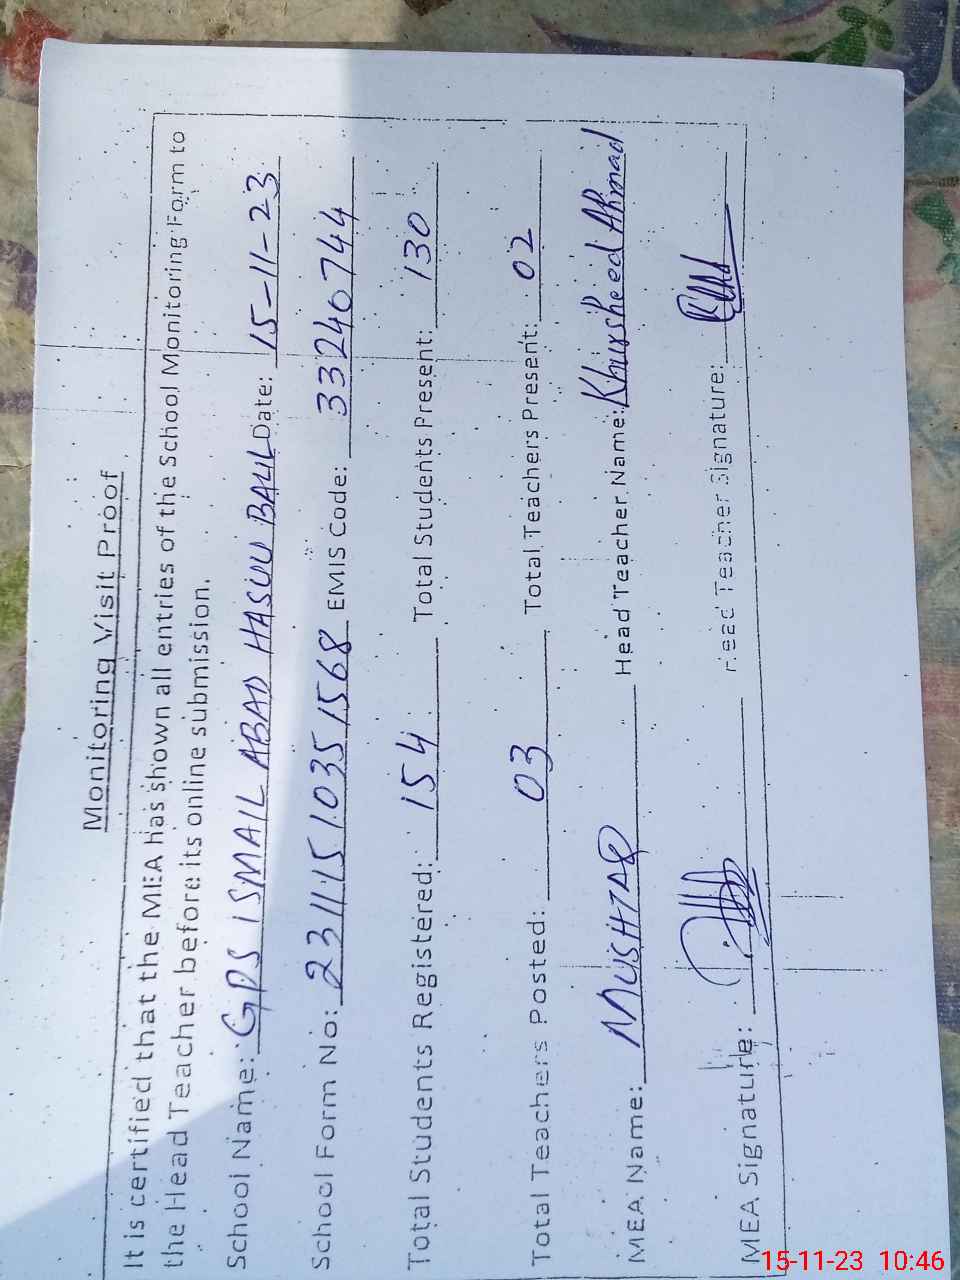 Monitoring Visit Proof
It is certified that the MEA has shown all entries of the School Monitoring Form to
the Head Teacher before its online submission.
School Name: GPS ISMAIL ABAD HASUU BALIL Date: 15-11-23
School Form No: 23111510351568 EMIS Code: 33240744
Total Students Registered: 154 Total Students Present: 130
Total Teachers Posted: 03 Total Teachers Present: 02
MEA Name: MUSHTAQ Head Teacher Name: Khursheed Ahmad
MEA Signature: Head Teacher Signature:
15-11-23 10:46